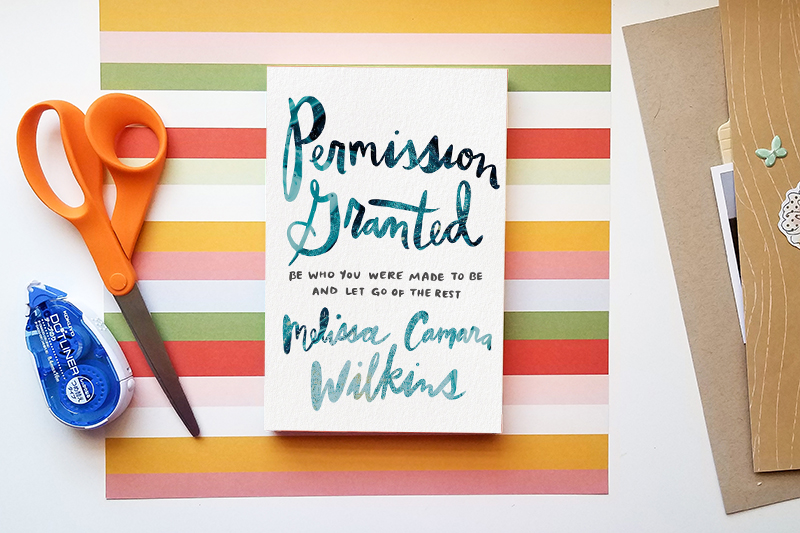 Permission
Granted
BE WHO YOU WERE MADE TO BE
AND LET GO OF THE REST
Melissa Camara
Wilkins
KOKUYO
DOTLINER